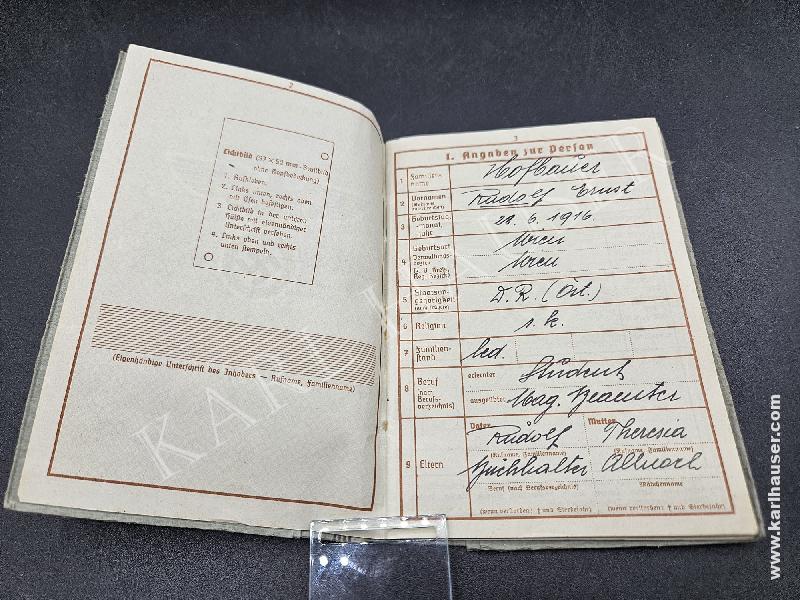 2
Lichtbild (37 × 52 mm - Brustbild
ohne Kopfbedeckung)
1. Aufkleben.
2. Links unten, rechts oben
mit Ösen befestigen.
3. Lichtbild in der unteren
Hälfte mit eigenhändiger
Unterschrift versehen.
4. Links oben und rechts
unten stempeln.
(Eigenhändige Unterschrift des Inhabers – Rufname, Familienname)
3
I. Angaben zur Person
1 Familien-
name Hofbauer
2 Vornamen Rudolf Ernst
3 Geburtstag,
-monat,
-jahr 21. 6. 1916
4 Geburtsort Wien
Verwaltungs-
bezirk Wien
5 Staatsan-
gehörigkeit D.R. (Öst.)
6 Religion r. k.
7 Familien-
stand led.
8 Beruf
(nach
Berufs-
verzeichnis) erlernter Student
ausgeübter Mag. Beamter
9 Eltern Vater Mutter
Rudolf Theresia
(Rufname, Familienname) (Rufname, Familienname)
Buchhalter
Beruf (nach Berufsverzeichnis) Mädchenname
(wenn verstorben: † und Sterbejahr) (wenn verstorben: † und Sterbejahr)
KARL HAUSER
www.karlhauser.com